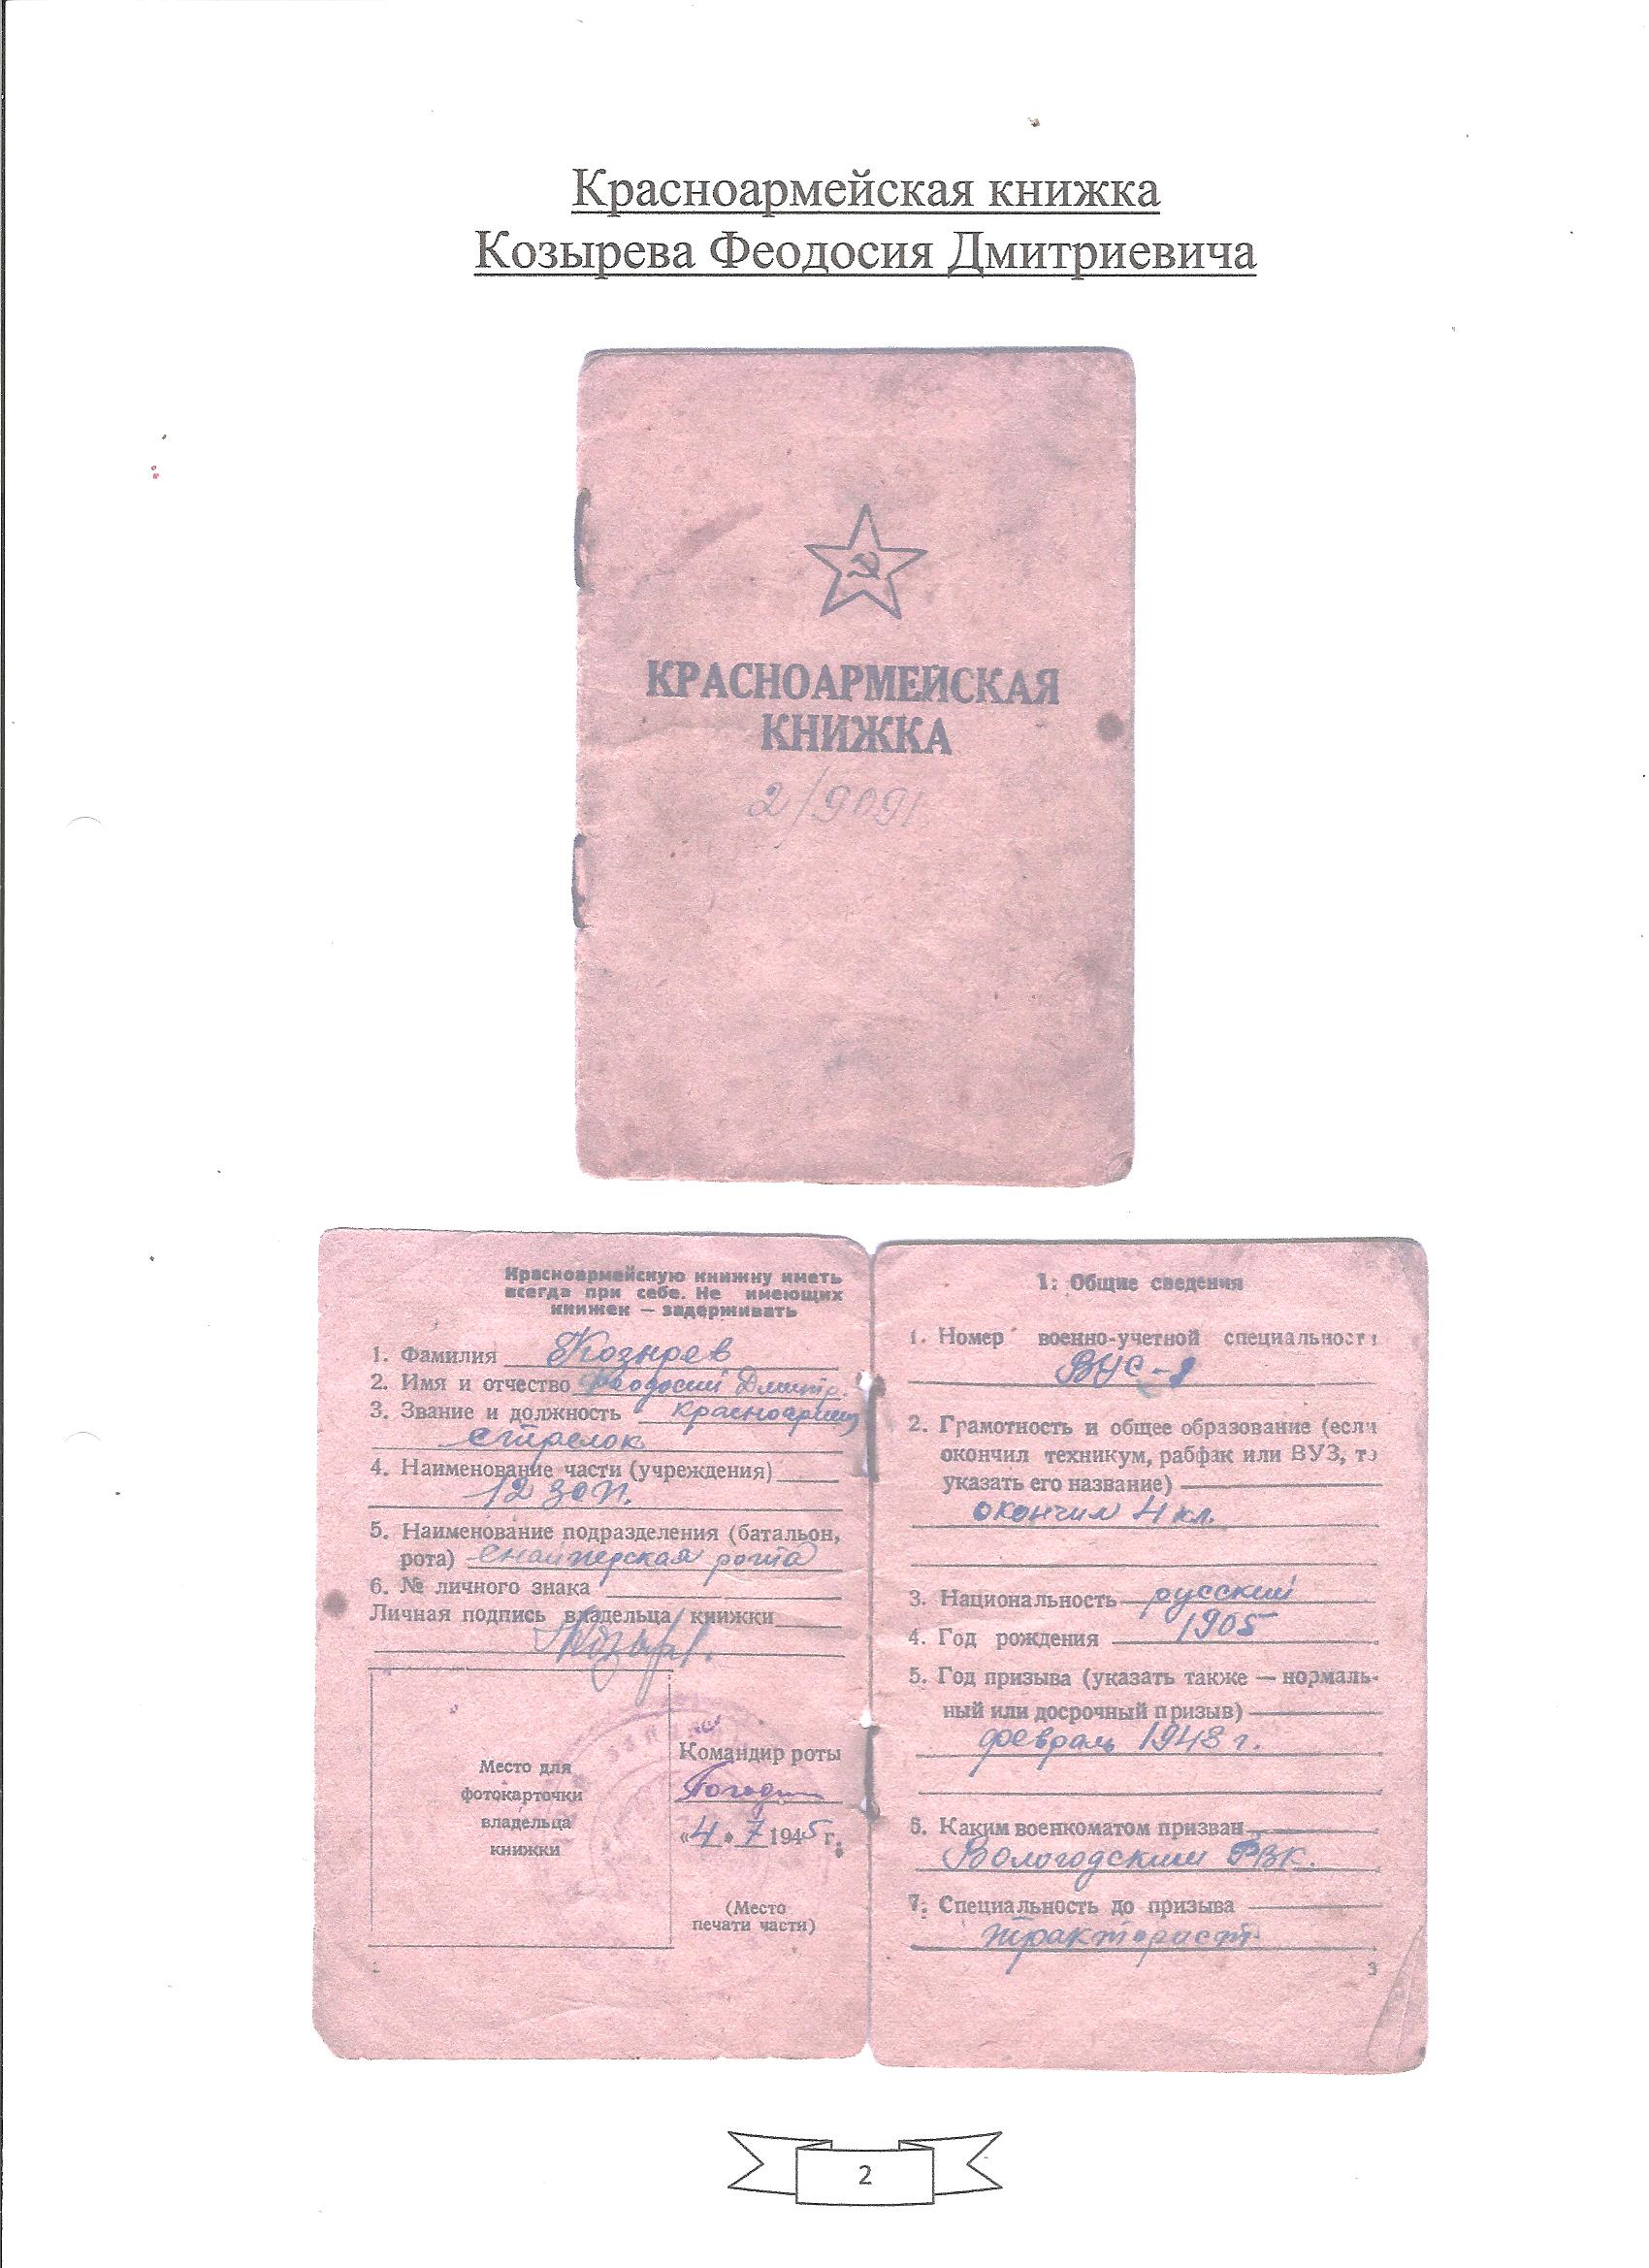 Красноармейская книжка
Козырева Феодосия Дмитриевича
КРАСНОАРМЕЙСКАЯ
КНИЖКА
2/9091
Красноармейскую книжку иметь
всегда при себе. Не имеющих
книжек — задерживать
1. Фамилия Козырев
2. Имя и отчество Феодосий Дмитр.
3. Звание и должность красноармеец
стрелок
4. Наименование части (учреждения)
12 зсп.
5. Наименование подразделения (батальон,
рота) снайперская рота
6. № личного знака
Личная подпись владельца книжки
Место для
фотокарточки
владельца
книжки
Командир роты
Погодин
«4» 7 1945 г.
(Место
печати части)
1. Общие сведения
1. Номер военно-учетной специальности
ВУС-1
2. Грамотность и общее образование (если
окончил техникум, рабфак или ВУЗ, то
указать его название)
окончил 4 кл.
3. Национальность русский
4. Год рождения 1905
5. Год призыва (указать также — нормаль-
ный или досрочный призыв)
февраль 1943 г.
6. Каким военкоматом призван
Вологодским РВК.
7. Специальность до призыва
тракторист
3
2